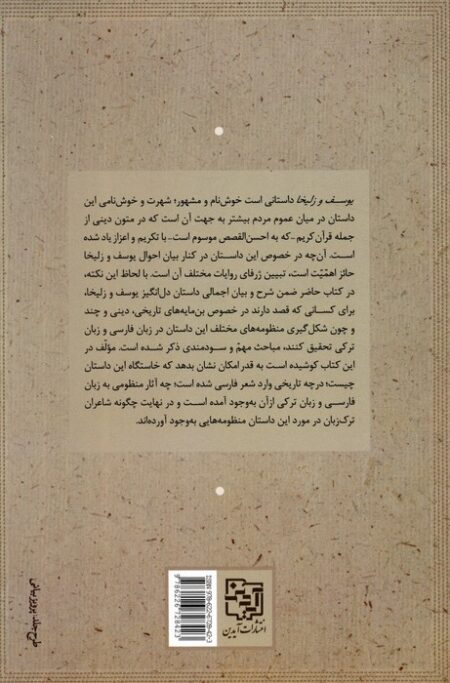 یوسف و زلیخا داستانی است خوش‌نام و مشهور؛ شهرت و خوش‌نامی این
داستان در میان عموم مردم بیشتر به جهت آن است که در متون دینی از
جمله قرآن کریم -که به احسن‌القصص موسوم است- با تکریم و اعزاز یاد شده
است. آن‌چه در خصوص این داستان در کنار بیان احوال یوسف و زلیخا
حائز اهمّیّت است، تبیین ژرفای روایات مختلف آن است. با لحاظ این نکته،
در کتاب حاضر ضمن شرح و بیان اجمالی داستان دل‌انگیز یوسف و زلیخا،
برای کسانی که قصد دارند در خصوص بن‌مایه‌های تاریخی، دینی و چند
و چون شکل‌گیری منظومه‌های مختلف این داستان در زبان فارسی و زبان
ترکی تحقیق کنند، مباحث مهمّ و سودمندی ذکر شده است. مؤلّف در
این کتاب کوشیده است به قدر امکان نشان بدهد که خاستگاه این داستان
چیست؛ درچه تاریخی وارد شعر فارسی شده است؛ چه آثار منظومی به زبان
فارسی و زبان ترکی ازآن به‌وجود آمده است و در نهایت چگونه شاعران
ترک‌زبان در مورد این داستان منظومه‌هایی به‌وجود آورده‌اند.
ISBN: 978-622-6728-42-3
9786226728423
انتشارات آیدین
طرح جلد: